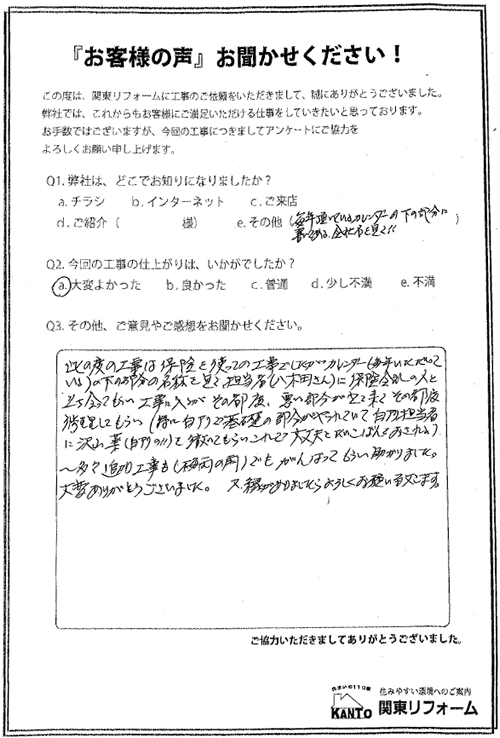 『お客様の声』お聞かせください！
この度は、関東リフォームに工事のご依頼をいただきまして、誠にありがとうございました。
弊社では、これからもお客様にご満足いただける仕事をしていきたいと思っております。
お手数ではございますが、今回の工事につきましてアンケートにご協力を
よろしくお願い申し上げます。
Q1. 弊社は、どこでお知りになりましたか？
a. チラシ b. インターネット c. ご来店
d. ご紹介（ 様） e. その他（毎年頂いているカレンダーの下の部分に
書いてある、会社名を見て!!）
Q2. 今回の工事の仕上がりは、いかがでしたか？
a. 大変よかった b. 良かった c. 普通 d. 少し不満 e. 不満
Q3. その他、ご意見やご感想をお聞かせください。
此の度の工事は保険を使っての工事でしたがカレンダー(毎年いただいて
いる)の下の部分の名称を見て担当者(八木田さん)に保険会社の人と
立ち会ってもらい工事に入りが その都度、悪い部分が出て来て その都度
修理してもらい (特に白アリで基礎の部分がやられていて 白アリ担当者
に沢山薬(白アリの)を撒いてもらいこれで大丈夫と
追加工事も でもがんばってもらい助かりました。
大変ありがとうございました。 又、縁がありましたらよろしくお願い致します。
ご協力いただきましてありがとうございました。
住まいの110番
KANTO
住みやすい環境へのご案内
関東リフォーム